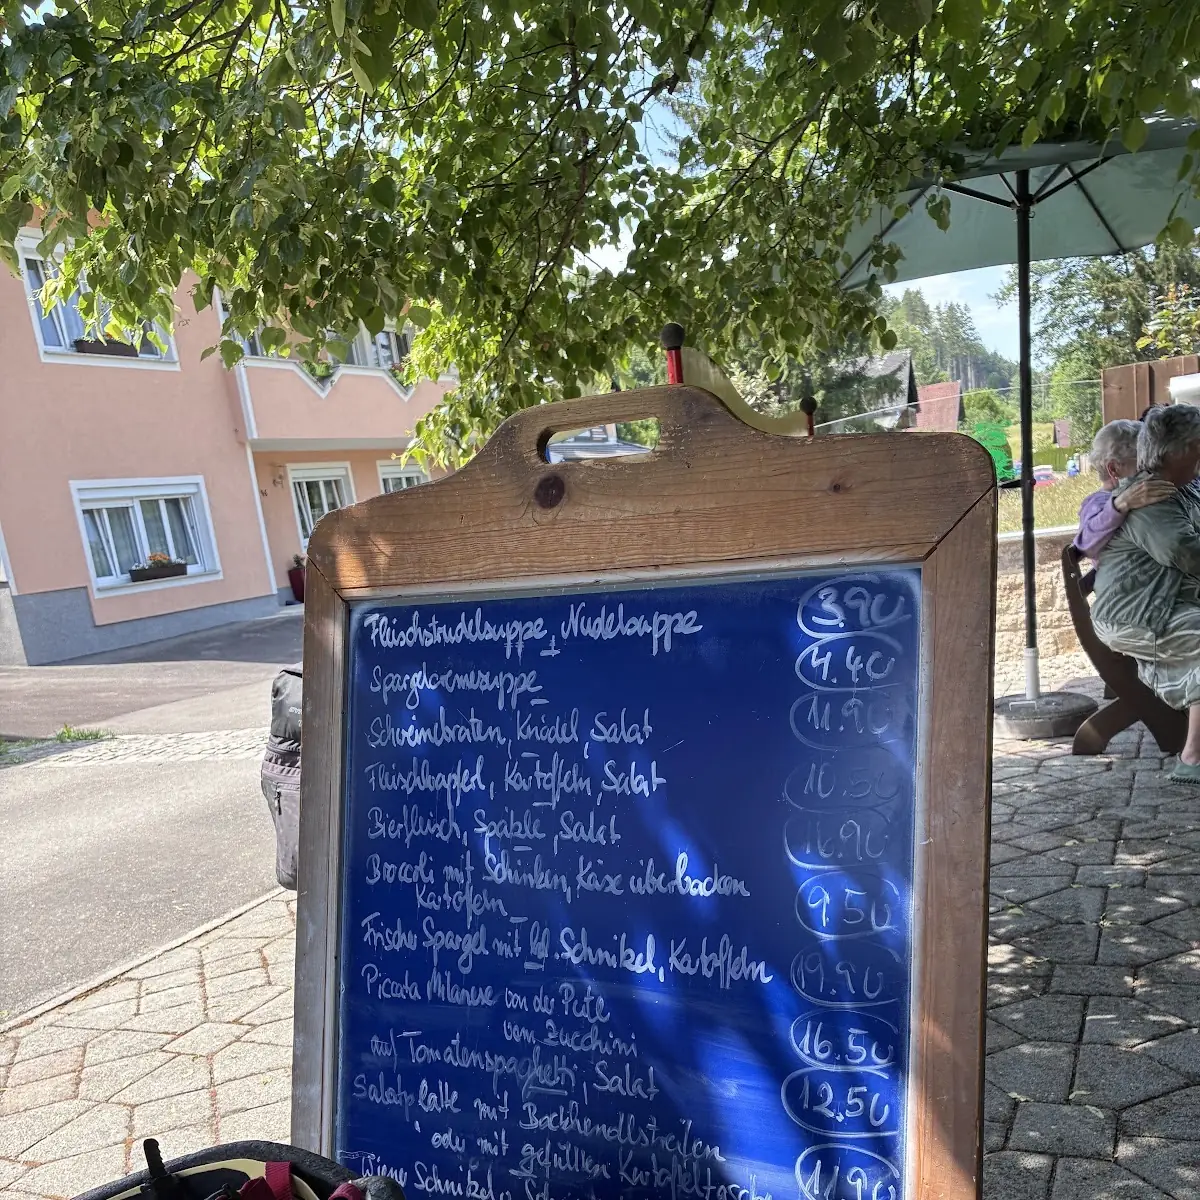 Fleischstrudelsuppe, Nudelsuppe 3.90
Spargelcremesuppe 4.40
Schweinsbraten, Knödel, Salat 11.90
Fleischlaaferl, Kartoffeln, Salat 10.50
Bierfleisch, Spätzle, Salat 16.90
Broccoli mit Schinken, Käse überbacken
Kartoffeln 9.50
Frischer Spargel mit kl. Schnitzel, Kartoffeln 19.90
Piccata Milanese von der Pute 16.50
vom Zucchini
auf Tomatenspaghetti, Salat 12.50
Salatplatte mit Backhendlstreifen
oder mit gefüllten Kartoffeltasche 11.90
Wiener Schnitzel